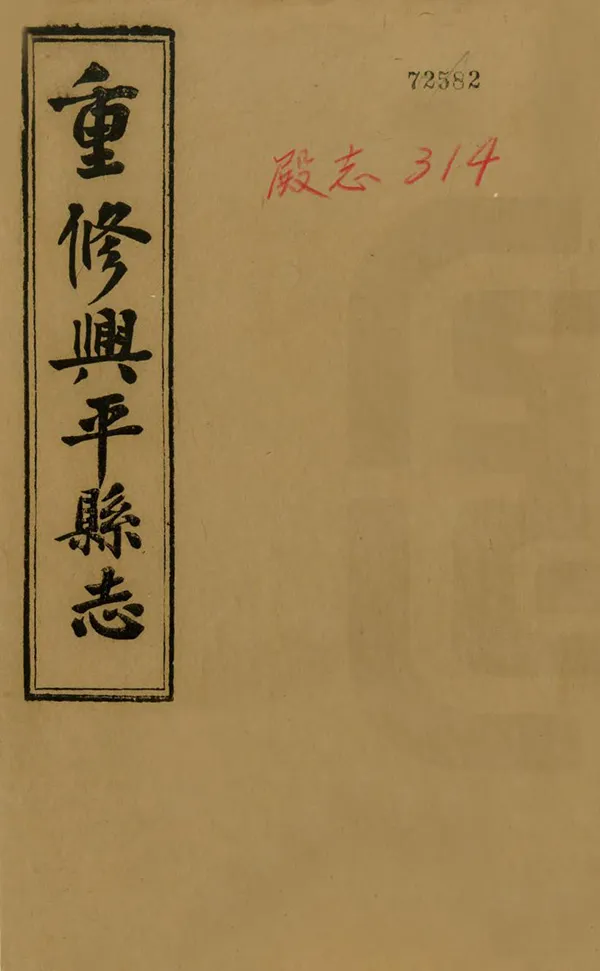 72582
殿志 314
重修興平縣志